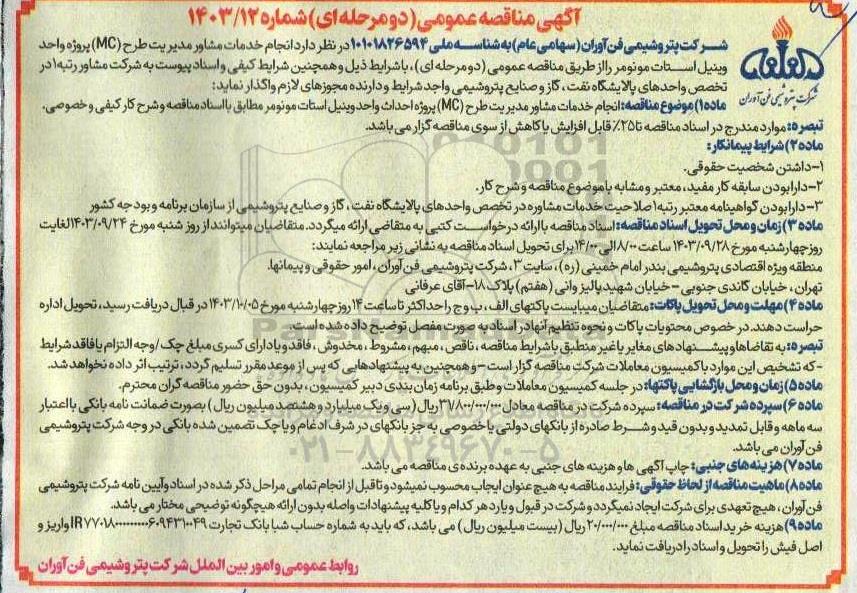 آگهی مناقصه عمومی (دو مرحله ای) شماره ۱۴۰۳/۱۲
شرکت پتروشیمی فن آوران (سهامی عام) به شناسه ملی ۱۰۱۰۱۸۲۶۵۹۴ در نظر دارد انجام خدمات مشاور مدیریت طرح (MC) پروژه واحد
وینیل استات مونومر را از طریق مناقصه عمومی (دو مرحله ای)، با شرایط ذیل و همچنین شرایط کیفی و اسناد پیوست به شرکت مشاور رتبه ۱ در
تخصص واحدهای پالایشگاه نفت، گاز و صنایع پتروشیمی واجد شرایط و دارنده مجوزهای لازم واگذار نماید:
شرکت پتروشیمی فن آوران
ماده ۱) موضوع مناقصه: انجام خدمات مشاور مدیریت طرح (MC) پروژه احداث واحد وینیل استات مونومر مطابق با اسناد مناقصه و شرح کار کیفی و خصوصی.
تبصره: موارد مندرج در اسناد مناقصه تا ۲۵٪ قابل افزایش یا کاهش از سوی مناقصه گزار می باشد.
ماده ۲) شرایط پیمانکار:
۱- داشتن شخصیت حقوقی.
۲- دارا بودن سابقه کار مفید، معتبر و مشابه با موضوع مناقصه و شرح کار.
۳- دارا بودن گواهینامه معتبر رتبه ۱ صلاحیت خدمات مشاوره در تخصص واحدهای پالایشگاه نفت، گاز و صنایع پتروشیمی از سازمان برنامه و بودجه کشور
ماده ۳) زمان و محل تحویل اسناد مناقصه: اسناد مناقصه با ارائه درخواست کتبی به متقاضی ارائه میگردد. متقاضیان میتوانند از روز شنبه مورخ ۱۴۰۳/۰۹/۲۴ لغایت
روز چهارشنبه مورخ ۱۴۰۳/۰۹/۲۸ ساعت ۸/۰۰ الی ۱۴/۰۰ برای تحویل اسناد مناقصه به نشانی زیر مراجعه نمایند:
منطقه ویژه اقتصادی پتروشیمی بندر امام خمینی (ره)، سایت ۳، شرکت پتروشیمی فن آوران، امور حقوقی و پیمانها.
تهران، خیابان گاندی جنوبی - خیابان شهید پالیز وانی (هفتم) پلاک ۱۸- آقای عرفانی
ماده ۴) مهلت و محل تحویل پاکات: متقاضیان میبایست پاکتهای الف، ب و ج را حداکثر تا ساعت ۱۴ روز چهارشنبه مورخ ۱۴۰۳/۱۰/۰۵ در قبال دریافت رسید، تحویل اداره
حراست دهند. در خصوص محتویات پاکات و نحوه تنظیم آنها در اسناد به صورت مفصل توضیح داده شده است.
تبصره: به تقاضاها و پیشنهادهای مغایر یا غیر منطبق با شرایط مناقصه، ناقص، مبهم، مشروط، مخدوش، فاقد و یا دارای کسری مبلغ چک/وجه التزام یا فاقد شرایط
-که تشخیص این موارد با کمیسیون معاملات شرکت مناقصه گزار است- و همچنین به پیشنهادهایی که پس از موعد مقرر تسلیم گردد، ترتیب اثر داده نخواهد شد.
ماده ۵) زمان و محل بازگشایی پاکتها: در جلسه کمیسیون معاملات و طبق برنامه زمان بندی دبیر کمیسیون، بدون حق حضور مناقصه گران محترم.
ماده ۶) سپرده شرکت در مناقصه: سپرده شرکت در مناقصه معادل ۳۱/۸۰۰/۰۰۰/۰۰۰ ریال (سی و یک میلیارد و هشتصد میلیون ریال) بصورت ضمانت نامه بانکی با اعتبار
سه ماهه و قابل تمدید و بدون قید و شرط صادره از بانکهای دولتی یا خصوصی به جز بانکهای در شرف ادغام و یا چک تضمین شده بانکی در وجه شرکت پتروشیمی
فن آوران می باشد.
ماده ۷) هزینه های جنبی: چاپ آگهی ها و هزینه های جنبی به عهده برنده ی مناقصه می باشد.
ماده ۸) ماهیت مناقصه از لحاظ حقوقی: فرایند مناقصه به هیچ عنوان ایجاب محسوب نمیشود و تا قبل از انجام تمامی مراحل ذکر شده در اسناد و آیین نامه شرکت پتروشیمی
فن آوران، هیچ تعهدی برای شرکت ایجاد نمیگردد و شرکت در قبول و یا رد هر کدام و یا کلیه پیشنهادات واصله بدون ارائه هیچگونه توضیحی مختار می باشد.
ماده ۹) هزینه خرید اسناد مناقصه مبلغ ۲۰/۰۰۰/۰۰۰ ریال (بیست میلیون ریال) می باشد، که باید به شماره حساب شبا بانک تجارت واریز و
اصل فیش را تحویل و اسناد را دریافت نماید.
روابط عمومی و امور بین الملل شرکت پتروشیمی فن آوران
۰۲۱-۸۸۳۴۹۶۷۰-۵